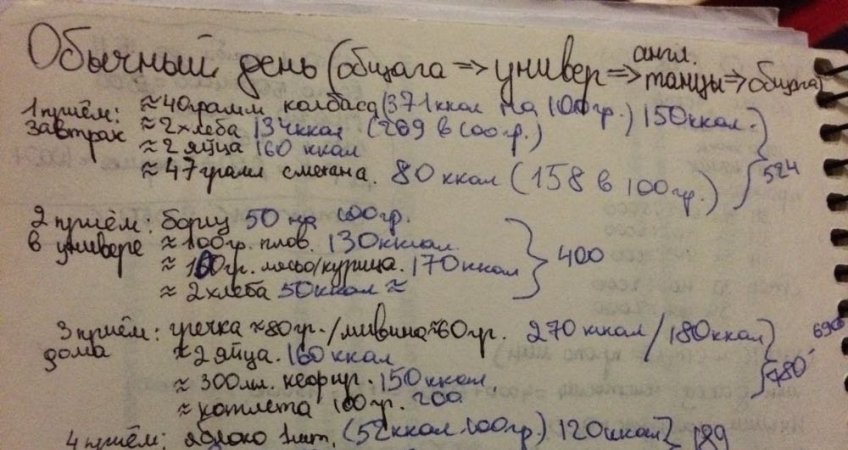 Обычный день (общага => универ => англ. танцы => общага)
1 приём: ≈ 40 грамм колбаса (371 ккал на 100 гр.) 150 ккал.
завтрак ≈ 2 хлеба 134 ккал (269 в 100 гр.)
≈ 2 яйца 160 ккал
≈ 47 грамм сметана. 80 ккал (158 в 100 гр.)
524
2 приём: борщ 50 на 100 гр.
в универе ≈ 100 гр. плов. 130 ккал.
≈ 100 гр. мясо/курица. 170 ккал
≈ 2 хлеба 50 ккал ≈
400
3 приём: гречка ≈ 80 гр. / мивина ≈ 60 гр. 270 ккал / 180 ккал
дома ≈ 2 яйца. 160 ккал
≈ 300 мл. кефир. 150 ккал.
≈ котлета 100 гр. 200
690
780
4 приём: яблоко 1 шт. (52 ккал 100 гр) 120 ккал } 189